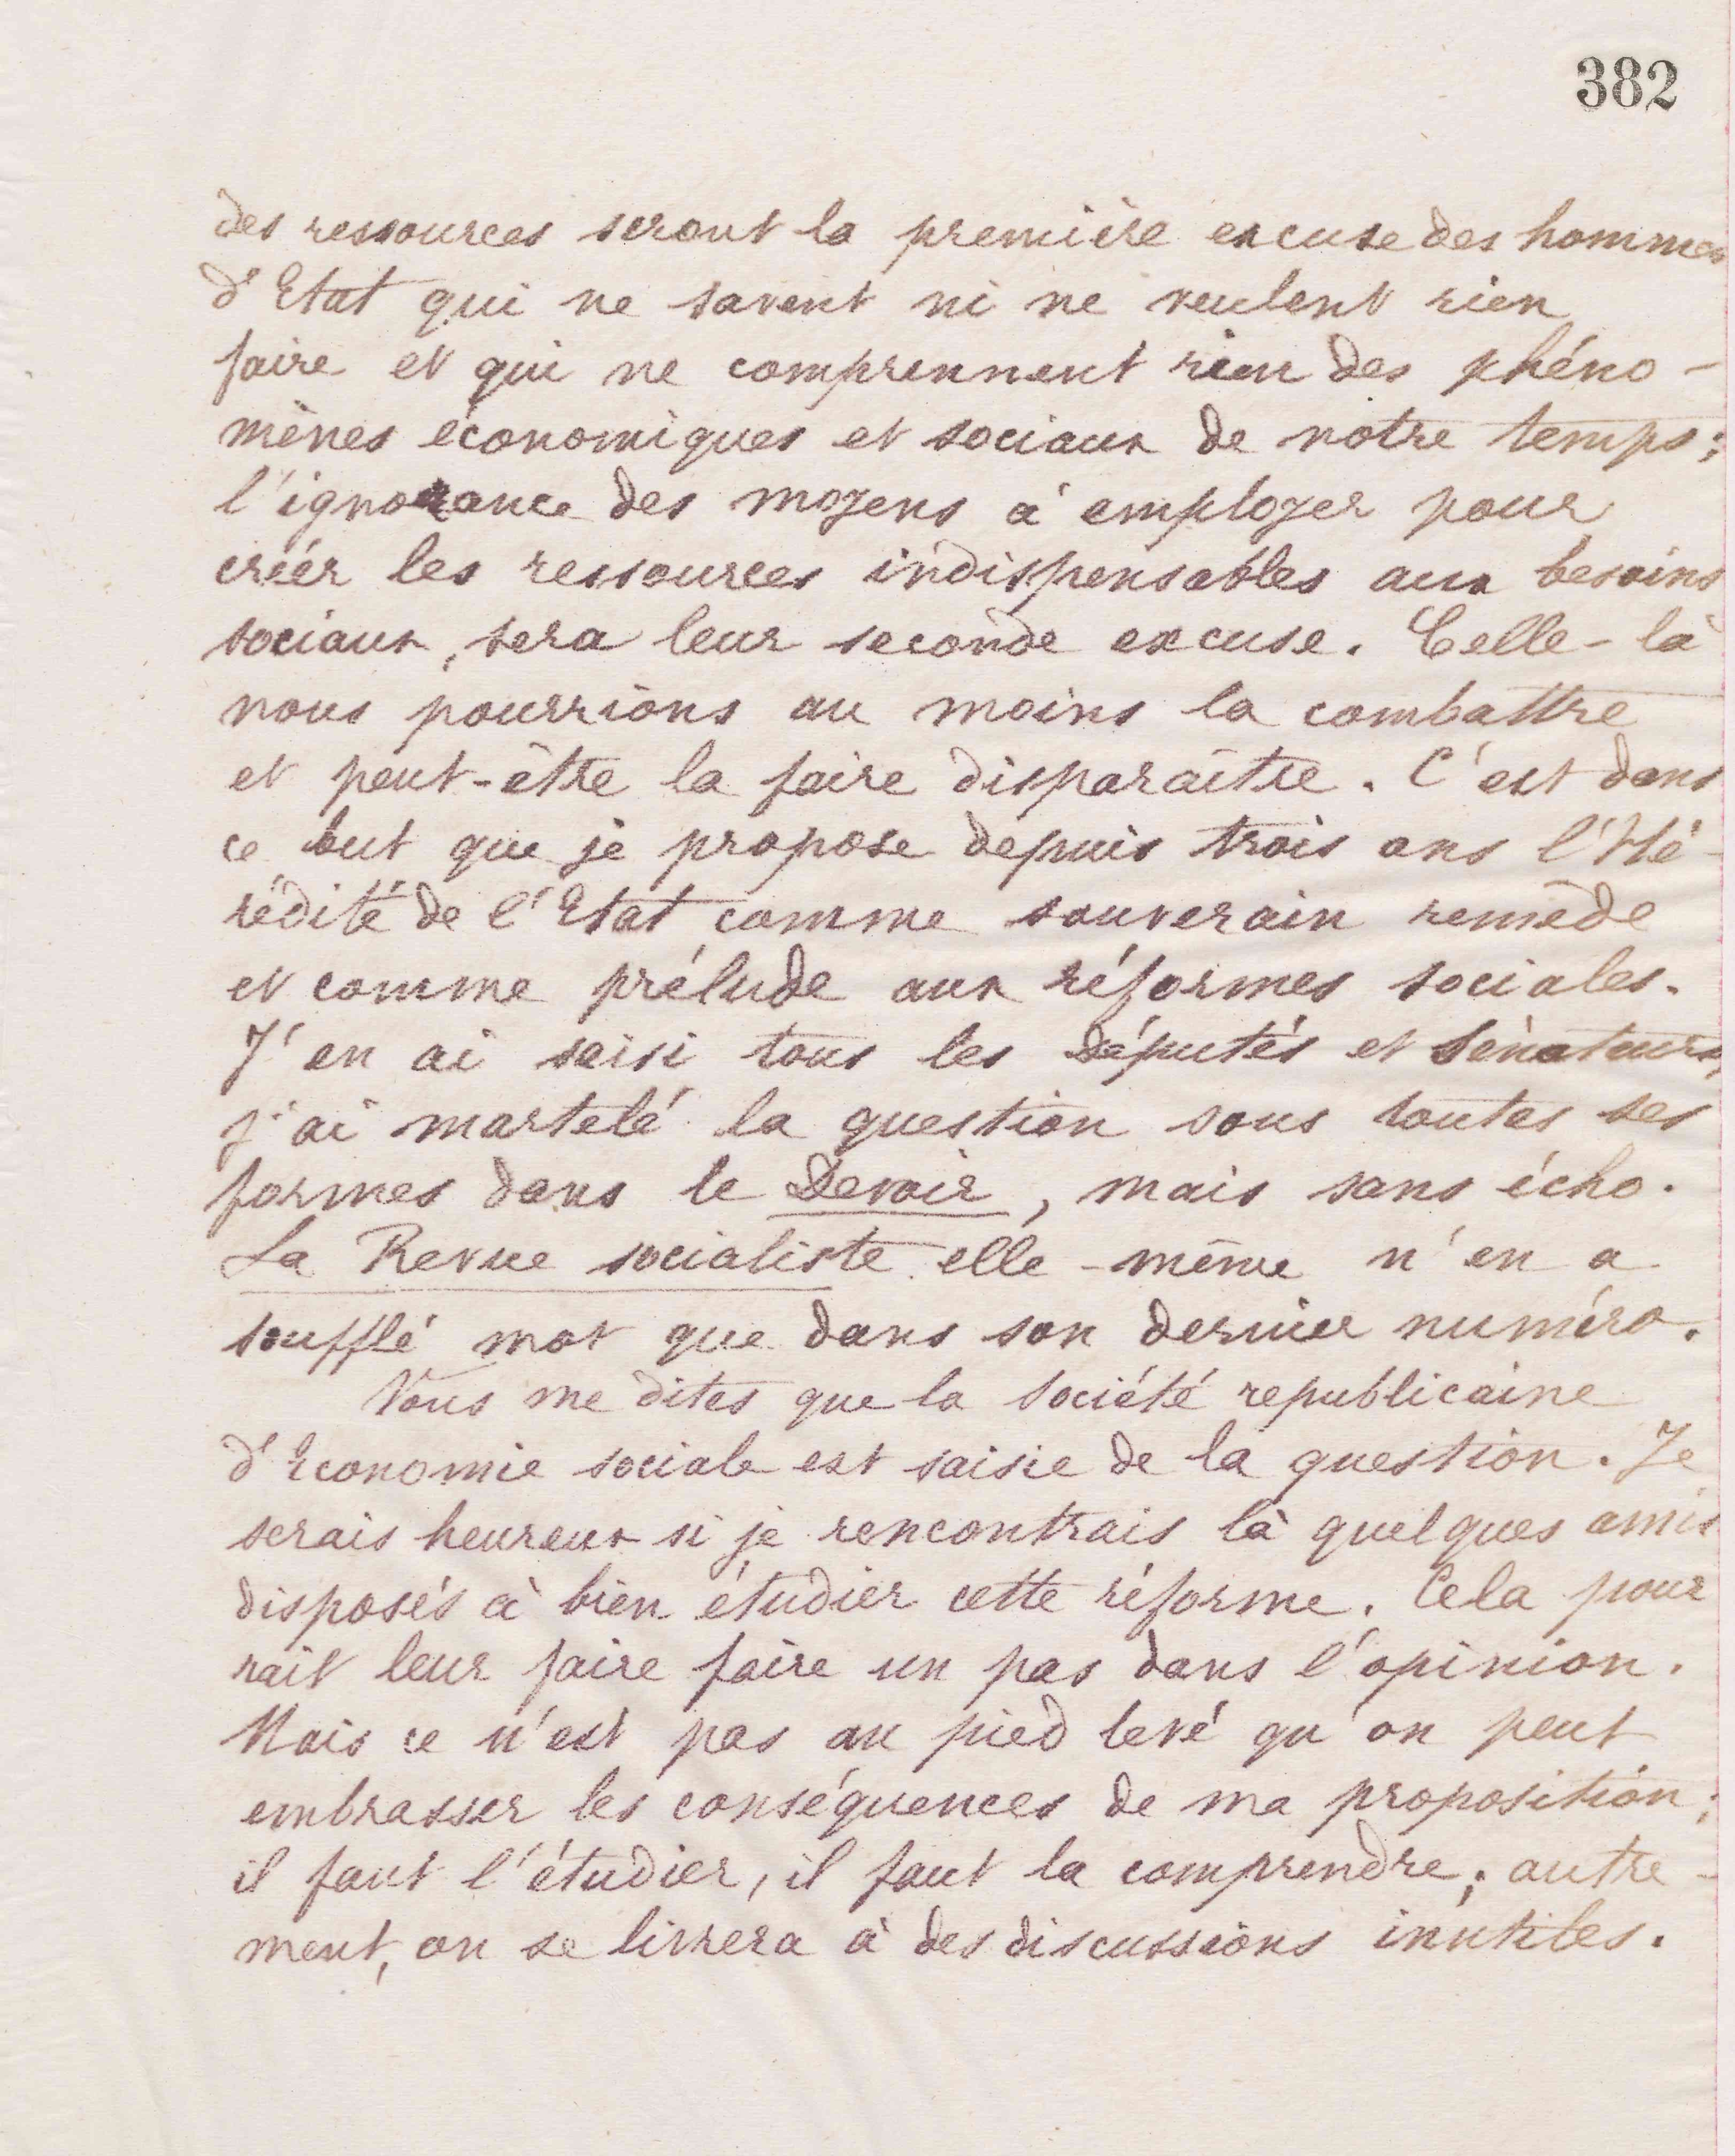 382
des ressources seront la première excuse des hommes
d'Etat qui ne savent ni ne veulent rien
faire et qui ne comprennent rien des phéno-
mènes économiques et sociaux de notre temps;
l'ignorance des moyens à employer pour
créer les ressources indispensables aux besoins
sociaux, sera leur seconde excuse. Celle-là
nous pourrions au moins la combattre
et peut-être la faire disparaître. C'est dans
ce but que je propose depuis trois ans l'Hé-
rédité de l'Etat comme souverain remède
et comme prélude aux réformes sociales.
J'en ai saisi tous les députés et Sénateurs,
j'ai martelé la question sous toutes ses
formes dans le Devoir, mais sans écho.
La Revue socialiste elle-même n'en a
soufflé mot que dans son dernier numéro.
Vous me dites que la société republicaine
d'Economie sociale est saisie de la question. Je
serais heureux si je rencontrais là quelques amis
disposés à bien étudier cette réforme. Cela pour
rait leur faire faire un pas dans l'opinion.
Mais ce n'est pas au pied levé qu'on peut
embrasser les conséquences de ma proposition;
il faut l'étudier, il faut la comprendre; autre-
ment, on se livrera à des discussions inutiles.